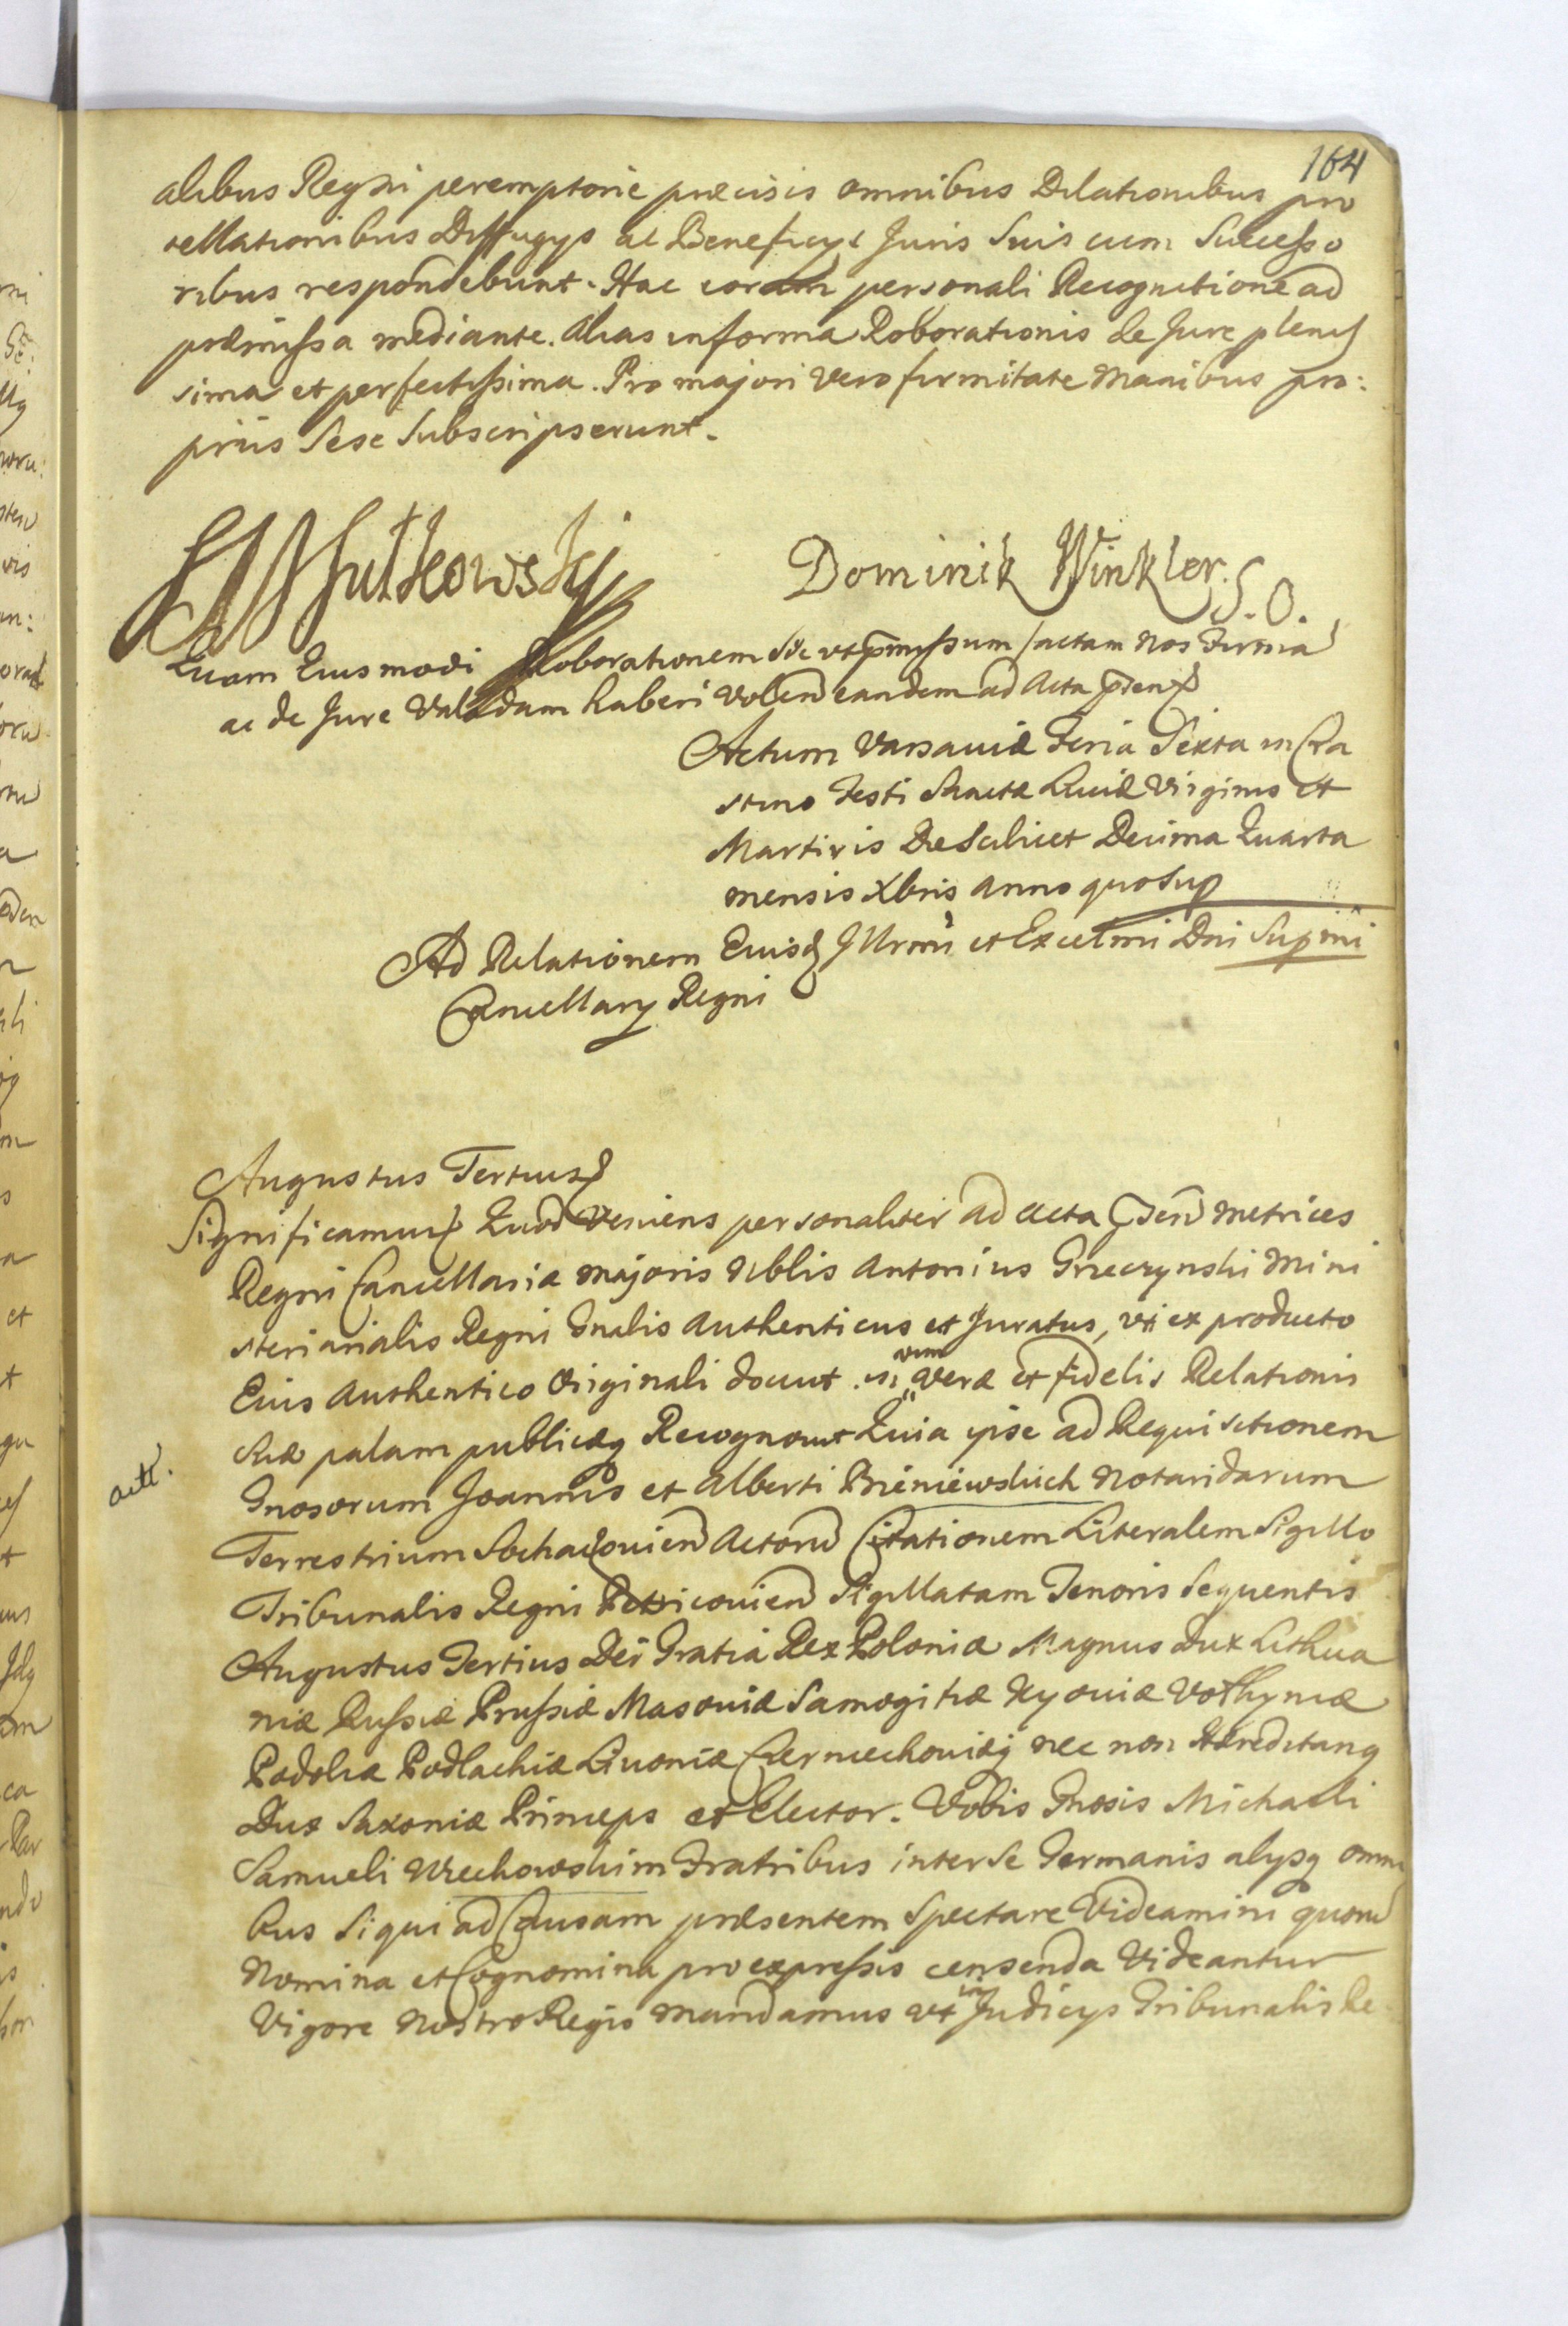 164
alibus Regni peremptorie præcisis omnibus Dilationibus pro
tellationibus Diffugijs ac Beneficijs Juris Suis cum Successo
ribus respondebunt. Hac coram personali Recognitione ad
præmissa mediante. Alias in forma Roborationis de Jure plenis
sima et perfectissima. Pro majori vero firmitate Manibus pro:
priis Sese Subscripserunt.
Dominik Winkler. S. O.
Quam Eiusmodi Roborationem Sic ut pmissum factam Nos Firmā
ac de Jure Validam haberi Volen eandem ad Acta pñen
Actum Varsaviæ Feria Sexta in Cra
stino Festi Sanctæ Luciæ Virginis et
Martiris Die Scilicet Decima Quarta
mensis Xbris Anno quo Sup
Ad Relationem Eiusd Illrmi et Excelmi Dni Supmi
Cancellarij Regni
Augustus Tertius
Significamus Quod Veniens personaliter ad Acta pñen Metrices
Regni Cancellariæ Majoris Nblis Antonius Grzeczynski Mini
sterialis Regni Gnalis Authenticus et Juratus, uti ex producto
Eius Authentico Originali docuit. in vim veræ et fidelis Relationis
Suæ palam publiceq Recognovit Quia ipse ad Requisitionem
Gnosorum Joannis et Alberti Bieniewskich Notaridarum
actt.
Terrestrium Sochaczovien Actorū Citationem Literalem Sigillo
Tribunalis Regni Petricovien Sigillatam Tenoris Sequentis
Augustus Tertius Dei Gratia Rex Poloniæ Magnus Dux Lithua
niæ Russiæ Prussiæ Masoviæ Samogitiæ Kyoviæ Volhyniæ
Podoliæ Podlachiæ Livoniæ Czerniechoviæq nec non Hæreditariq
Dux Saxoniæ Princeps et Elector. Vobis Gnosis Michaeli
Samueli Wiechowskim Fratribus inter Se Germanis alijsq omni
bus Siqui ad Causam præsentem Spectare Videamini quorū
Nomina et Cognomina pro expressis censenda Videantur
Vigore Nostro Regio mandamus ut in Judicijs Tribunalis Re